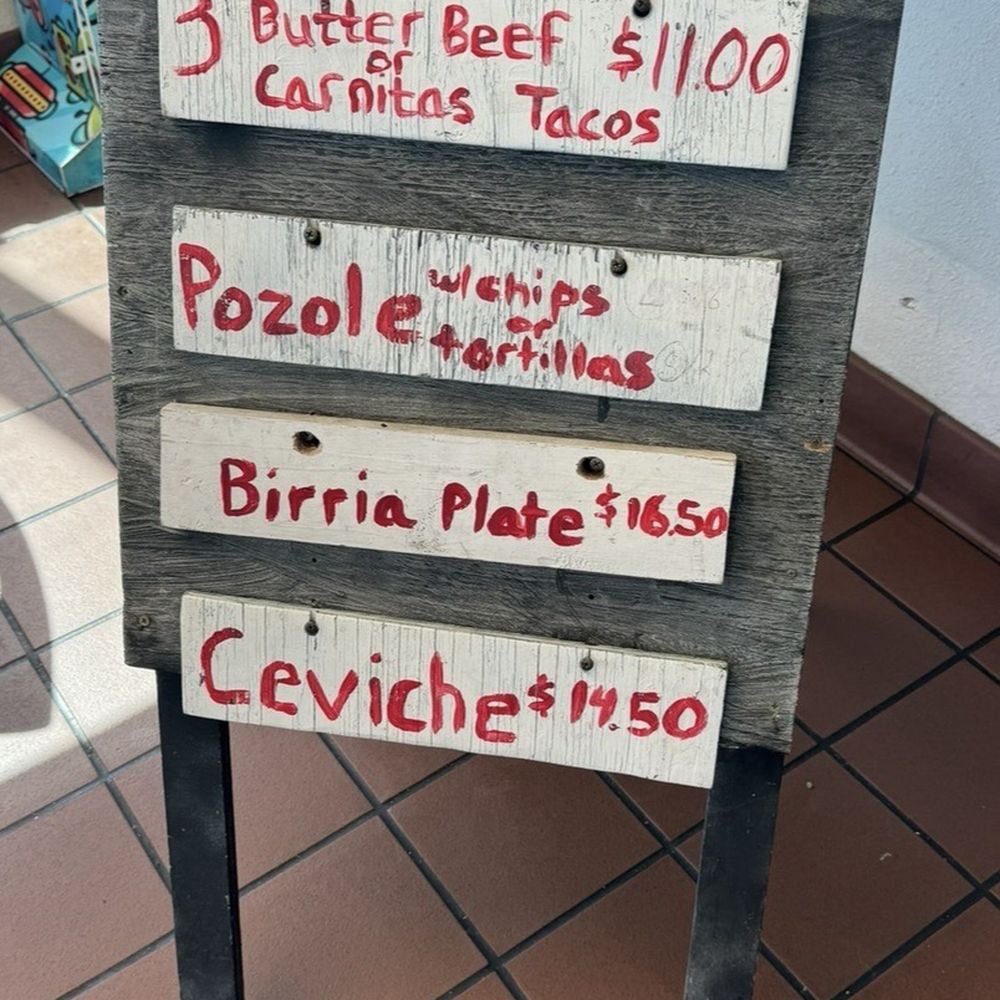 3 Butter Beef $11.00
or
Carnitas Tacos
Pozole w/chips
or
tortillas
Birria Plate $16.50
Ceviche $14.50